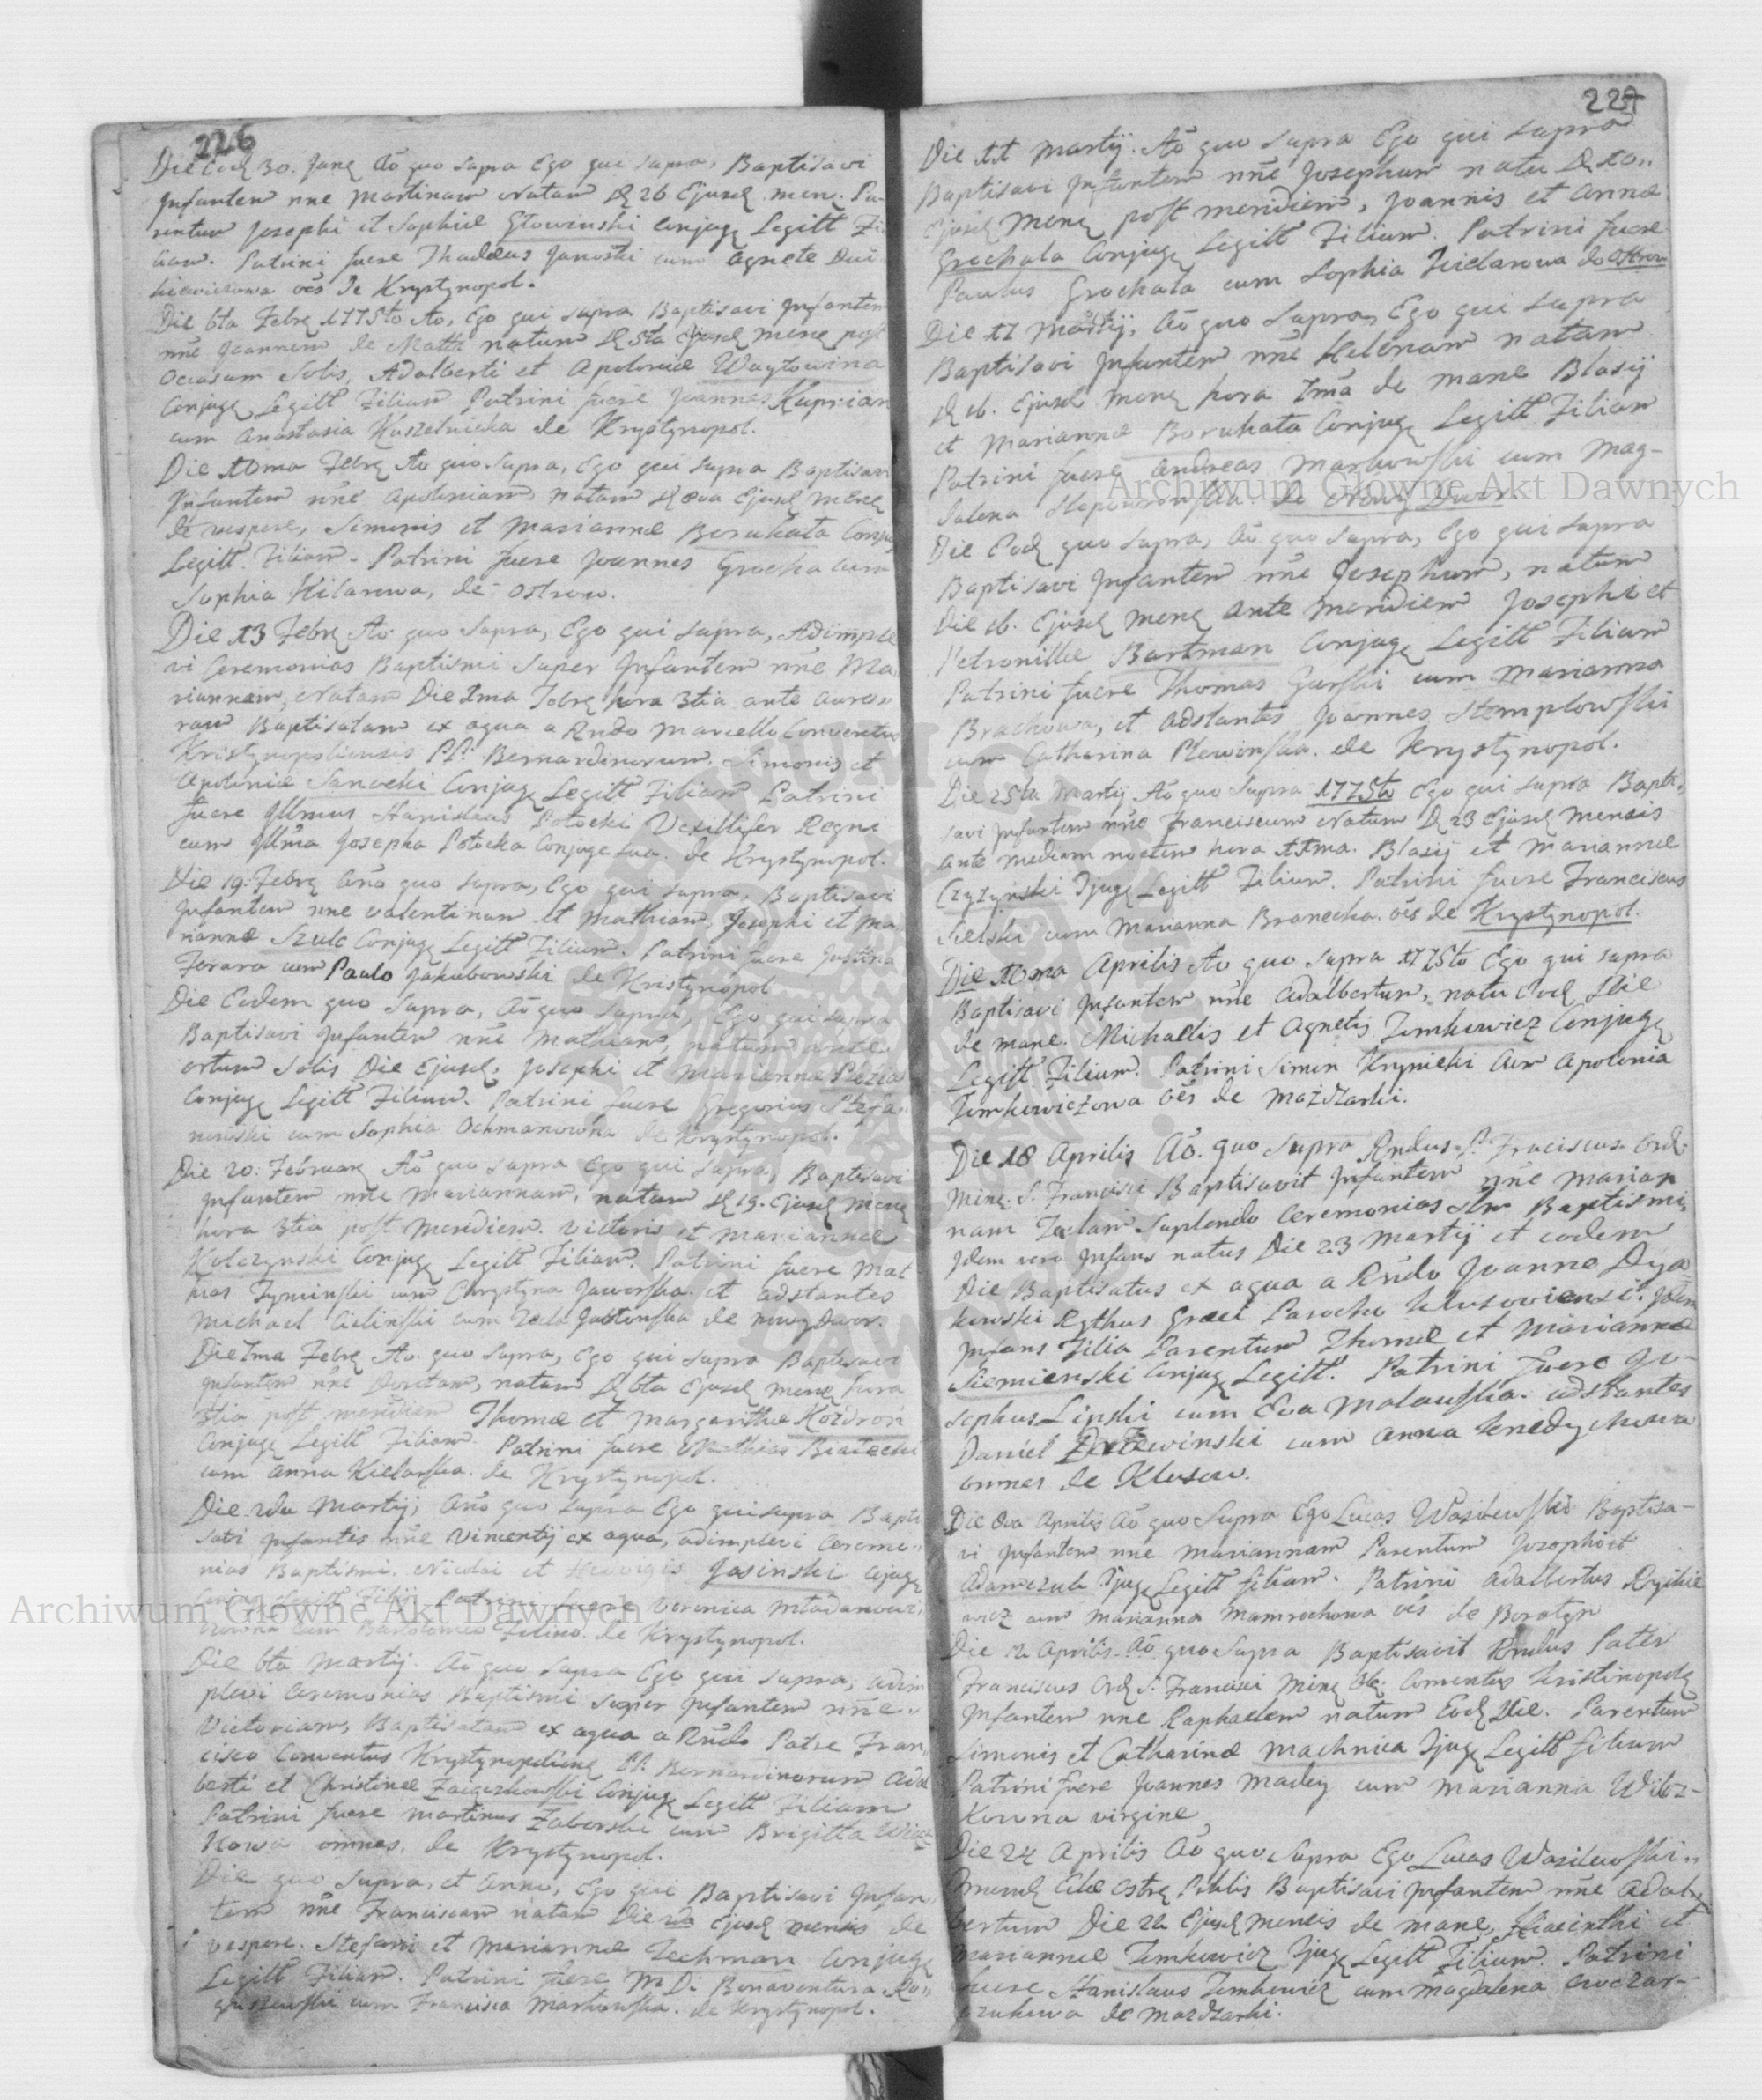 226
Die Eodem 30. Jane Ao quo Supra Ego qui supra, Baptisavi
Infantem nne Martinam Natam D 26 Ejusd mens. Pa-
rentum Josephi et Sophiæ Głowinski Conjug Legitt Fi-
liam. Patrini fuere Thadeus Janoski cum Agnete
oēs de Krystynopol.
Die 6ta Febr 1775to Ao, Ego qui supra Baptisavi Infantem
nne Joannem de Matta natum D 5ta Ejusd Mense post
Occasum Solis, Adalberti et Apoloniæ Waytowina
Conjug Legitt Filium Patrini fuere Joannes Kuprian
cum Anastasia Kaszelnicka de Krystynopol.
Die 10ma Febr Ao quo Supra, Ego qui supra Baptisavi
Infantem nne Apoloniam natam D 8va Ejusd Mense
de vespere, Simonis et Mariannæ Borukata Conjug
Legitt. Filiam - Patrini fuere Joannes Grocha cum
Sophia Kilarowa, de Ostrow.
Die 13 Febr Ao quo Supra, Ego qui supra, Adimple
vi Ceremonias Baptismi Super Infantem nne Ma
riannam, Natam Die 1ma Febr hora 3tia ante auro-
ram Baptisatam ex aqua a Rndo Marcello Conventus
Kristynopoliensis PP. Bernardinorum. Simonis et
Apoloniæ Sanocki Conjug Legitt Filiam Patrini
fuere Illmus Stanislaus Potocki Vexillifer Regni
cum Illma Josepha Potocka Conjuge sua. de Krystynopol.
Die 19. Febr Ano quo Supra, Ego qui supra, Baptisavi
Infantem nne Valentinum et Mathiam, Josephi et Ma
riannæ Szulc Conjug Legitt Filium. Patrini fuere Justina
Ferara cum Paulo Jakubowski de Kristynopol
Die Eodem quo Supra, Ao quo Supra, Ego qui supra
Baptisavi Infantem nne Mathiam, natum ante
ortum Solis Die Ejusd. Josephi et Mariannæ Plezia
Conjug Legitt Filium. Patrini fuere Gregorius Stefa-
nowski cum Sophia Ochmanowna de Krystynopol.
Die 20. Februar Ao quo Supra Ego qui supra, Baptisavi
Infantem nne Mariannam, natam D 19. Ejusd Mens
hora 3tia post Meridiem. Victoris et Mariannæ
Kolczynski Conjug Legitt Filiam. Patrini fuere Mat-
hias Tyminski cum Chrystyna Jaworska et adstantes
Michael Cielinski cum Tecla Jastonska de nowy dwor.
Die 7ma Febr Ao quo Supra, Ego qui supra Baptisavi
Infantem nne Doroteam, natam D 6ta Ejusd Mens hora
3tia post meridiem Thomæ et Margarithæ Koźdroń
Conjug Legitt Filiam. Patrini fuere Mathias Białecki
cum Anna Kielarska. de Krystynopol.
Die 2da Martij, Ano quo supra Ego qui supra Bapti
savi Infantis nne Vincentij ex aqua, adimplevi Ceremo-
nias Baptismi. Nicolai et Hedvigis Jasinski Cjug
Legitt Filij Patrini fuere Veronica
cum Bartolomeo de Krystynopol.
Die 6ta Martij Ao quo Supra Ego qui supra, adim
plevi Ceremonias Baptismi Super Infantem nne
Victoriam, Baptisatam ex aqua a Rndo Patre Fran-
cisco Conventus Krystynopoliens PP. Bernardinorum Adal
berti et Christinæ Zaiączkowski Conjug Legitt Filiam
Patrini fuere Martinus Zaborski cum Brigitta
Kowa omnes. de Krystynopol.
Die quo Supra, et Anno, Ego qui Baptisavi Infan-
tem nne Franciscam natam Die 2da Ejusd mensis de
vespere. Stefani et Mariannæ Techman Conjug
Legitt Filiam. Patrini fuere M. D. Bonaventura Ro-
guszewski cum Francisca Markowska. de Krystynopol.
227
Die 11 Martij. Ao quo Supra Ego qui Supra
Baptisavi Infantem nne Josephum natu D 10..
Ejusd Mens post meridiem, Joannis et Annæ
Grochala Conjug Legitt Filium. Patrini fuere
Paulus Grochala cum Sophia Kielarowa de Ostrow
Die 17 Martij, Ao quo Supra, Ego qui Supra
Baptisavi Infantem nne Helenam natam
D 16. Ejusd Mens hora 7ma de mane Blasij
et Mariannæ Borukata Conjug Legitt Filiam
Patrini fuere Andreas Markowski cum Mag-
dalena de Nowy Dwor
Die Eod quo Supra, Ao quo Supra, Ego qui Supra
Baptisavi Infantem nne Josephum, natum
Die 16. Ejusd Mens ante Meridiem Josephi et
Petronillæ Bartman Conjug Legitt Filium
Patrini fuere Thomas Gurski cum Marianna
Brachowa, et adstantes Joannes Stemplowski
cum Catharina Plewinska. de Krystynopol.
Die 25ta Martij Ao quo Supra 1775to Ego qui supra Bapti-
savi Infantem nne Franciscum Natum D 23 Ejusd Mensis
ante mediam noctem hora 11ma. Blasij et Mariannæ
Czyzynski Cjug Legitt Filium. Patrini fuere Franciscus
Sielski cum Marianna Branecka. oēs de Krystynopol.
Die 10ma Aprilis Ao quo Supra 1775to Ego qui supra
Baptisavi Infantem nne Adalbertum, natu Eod Die
de mane. Michaelis et Agnetis Temkowicz Conjug
Legitt Filium. Patrini Simon Krynicki cum Apolonia
Temkowiczowa oēs de Mażdzarki.
Die 18 Aprilis Ao. quo Supra Rndus P. Franciscus Ord.
Min. S. Francisci Baptisavit Infantem nne Marian
nam Teclam Suplendo Ceremonias Baptismi,
Idem vero Infans natus Die 23 Martij et eodem
Die Baptisatus ex aqua a Rndo Joanne Dya
kowski Rythus Græci Parocho Klusoviensi. Idem
Infans Filia Parentum Thomæ et Mariannæ
Siemienski Conjug Legitt. Patrini fuere Jo-
sephus Lipski cum Eva Malawska. adstantes
Daniel cum Anna
omnes de Klusow.
Die 8va Aprilis Ao quo Supra Ego Lucas Wasilewski Baptisa-
vi Infantem nne Mariannam Parentum Josephi et
Adamczuk Cjug Legitt filiam. Patrini Adalbertus
wicz cum Marianna Mamrochowa oēs de Boratyn
Die 12 Aprilis Ao quo Supra Baptisavit Rndus Pater
Franciscus Ord S. Francisci Min Ob. Conventus Kristinopol
Infantem nne Raphaelem natum Eod Die. Parentum
Simonis et Catharinæ Machnica Cjug Legitt filium
Patrini fuere Joannes Madey cum Marianna Wilcz-
kowna virgine,
Die 24 Aprilis Ao quo Supra Ego Lucas Wasilewski
Baptisavi Infantem nne Adal-
bertum Die 22 Ejusd Mensis de mane, Hiacinthi et
Mariannæ Temkowicz Cjug Legitt Filium. Patrini
fuere Stanislaus Temkowicz cum Magdalena Owczar-
czukowa de Mazdzarki.
Archiwum Główne Akt Dawnych
Archiwum Główne Akt Dawnych